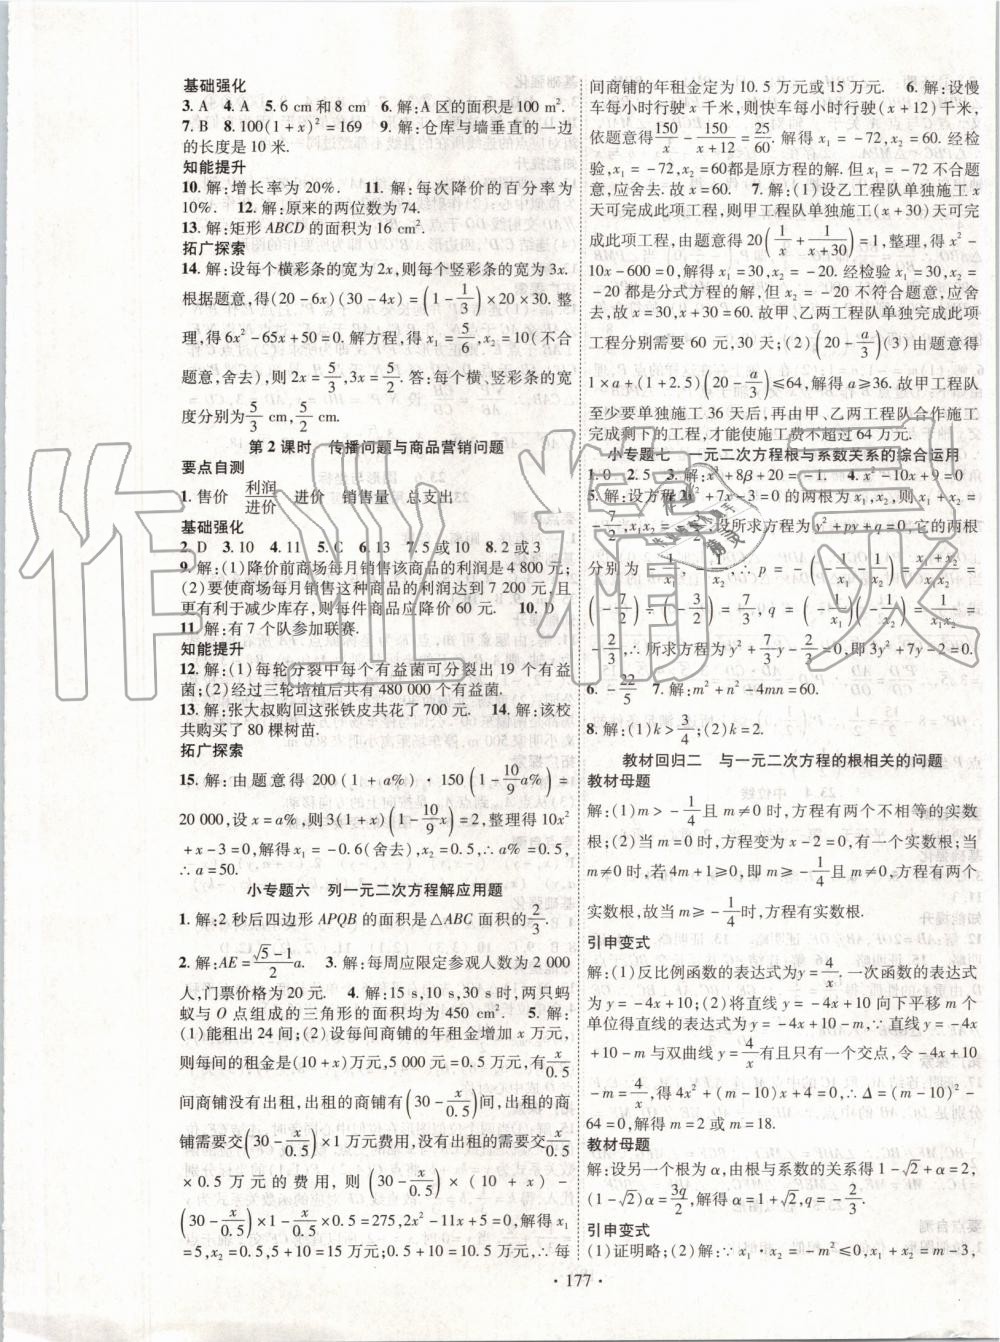 基础强化
3. A　4. A　5. 6 cm和8 cm　6. 解:A区的面积是100 m².
7. B　8. 100(1+x)²=169　9. 解:仓库与墙垂直的一边
的长度是10米.
知能提升
10. 解:增长率为20%.　11. 解:每次降价的百分率为
10%.　12. 解:原来的两位数为74.
13. 解:矩形ABCD的面积为16 cm².
拓广探索
14. 解:设每个横彩条的宽为2x,则每个竖彩条的宽为3x.
根据题意,得(20-6x)(30-4x)=(1-1/3)×20×30. 整
理,得6x²-65x+50=0. 解方程,得x₁=5/6,x₂=10(不合
题意,舍去),则2x=5/3,3x=5/2. 答:每个横、竖彩条的宽
度分别为5/3 cm,5/2 cm.
第2课时　传播问题与商品营销问题
要点自测
1. 售价　利润/进价　进价　销售量　总支出
基础强化
2. D　3. 10　4. 11　5. C　6. 13　7. 5或10　8. 2或3
9. 解:(1)降价前商场每月销售该商品的利润是4 800元;
(2)要使商场每月销售这种商品的利润达到7 200元,且
更有利于减少库存,则每件商品应降价60元.　10. D
11. 解:有7个队参加联赛.
知能提升
12. 解:(1)每轮分裂中每个有益菌可分裂出19个有益
菌;(2)经过三轮培植后共有480 000个有益菌.
13. 解:张大叔购回这张铁皮共花了700元.　14. 解:该校
共购买了80棵树苗.
拓广探索
15. 解:由题意得200(1+a%)·150(1-10/9 a%)=
20 000,设x=a%,则3(1+x)(1-10/9 x)=2,整理得10x²
+x-3=0,解得x₁=-0.6(舍去),x₂=0.5,∴a%=0.5,
∴a=50.
小专题六　列一元二次方程解应用题
1. 解:2秒后四边形APQB的面积是△ABC面积的2/3.
2. 解:AE=(√5-1)/2 a.　3. 解:每周应限定参观人数为2 000
人,门票价格为20元.　4. 解:15 s,10 s,30 s时,两只蚂
蚁与O点组成的三角形的面积均为450 cm².　5. 解:
(1)能租出24间;(2)设每间商铺的年租金增加x万元,
则每间的租金是(10+x)万元,5 000元=0.5万元,有x/0.5
间商铺没有出租,出租的商铺有(30-x/0.5)间,出租的商
铺需要交(30-x/0.5)×1万元费用,没有出租的需要交x/0.5
×0.5万元的费用,则(30-x/0.5)(10+x)
-(30-x/0.5)×1-x/0.5×0.5=275,2x²-11x+5=0,解得x₁
=5,x₂=0.5,5+10=15,0.5+10=10.5(万元),∴每
间商铺的年租金定为10.5万元或15万元.　6. 解:设慢
车每小时行驶x千米,则快车每小时行驶(x+12)千米,
依题意得150/x-150/(x+12)=25/60. 解得x₁=-72,x₂=60. 经检
验,x₁=-72,x₂=60都是原方程的解,但x=-72不合题
意,应舍去. 故x=60.　7. 解:(1)设乙工程队单独施工x
天可完成此项工程,则甲工程队单独施工(x+30)天可完
成此项工程,由题意得20(1/x+1/(x+30))=1,整理,得x²-
10x-600=0,解得x₁=30,x₂=-20. 经检验x₁=30,x₂=
-20都是分式方程的解,但x₂=-20不符合题意,应舍
去. 故x=30,x+30=60. 故甲、乙两工程队单独完成此项
工程分别需要60天,30天;(2)(20-a/3)(3)由题意得
1×a+(1+2.5)(20-a/3)≤64,解得a≥36. 故甲工程队
至少要单独施工36天后,再由甲、乙两工程队合作施工
完成剩下的工程,才能使施工费不超过64万元.
小专题七　一元二次方程根与系数关系的综合运用
1. 0　2. 5　3. 解:α³+8β+20=-1.　4. 解:x²-10x+9=0
5. 解:设方程2x²+7x-3=0的两根为x₁,x₂,则x₁+x₂=
-7/2,x₁x₂=-3/2,设所求方程为y²+py+q=0,它的两根
分别为-1/x₁,-1/x₂,∴p=-(-1/x₁-1/x₂)=1/x₁+1/x₂=(x₁+x₂)/x₁x₂=
(-7/2)÷(-3/2)=7/3,q=(-1/x₁)(-1/x₂)=1/x₁x₂=
-2/3,∴所求方程为y²+7/3 y-2/3=0,即3y²+7y-2=0.
6. -22/5　7. 解:m²+n²-4mn=60.
8. 解:(1)k>3/4;(2)k=2.
教材回归二　与一元二次方程的根相关的问题
教材母题
解:(1)m>-1/4且m≠0时,方程有两个不相等的实数
根;(2)当m=0时,方程变为x-2=0,有一个实数根;当
m≠0时,若4m+1≥0,即m≥-1/4且m≠0,方程有两个
实数根,故当m≥-1/4时,方程有实数根.
引申变式
解:(1)反比例函数的表达式为y=4/x. 一次函数的表达式
为y=-4x+10;(2)将直线y=-4x+10向下平移m个
单位得直线的表达式为y=-4x+10-m,∵直线y=-4x
+10-m与双曲线y=4/x只有一个交点,令-4x+10
-m=4/x,得4x²+(m-10)x+4=0,∴Δ=(m-10)²-
64=0,解得m=2或m=18.
教材母题
解:设另一个根为α,由根与系数的关系得1-√2+α=2,
(1-√2)α=3q/2,解得α=1+√2,q=-2/3.
引申变式
(1)证明略;(2)解:∵x₁·x₂=-m²≤0,x₁+x₂=m-3,
· 177 ·